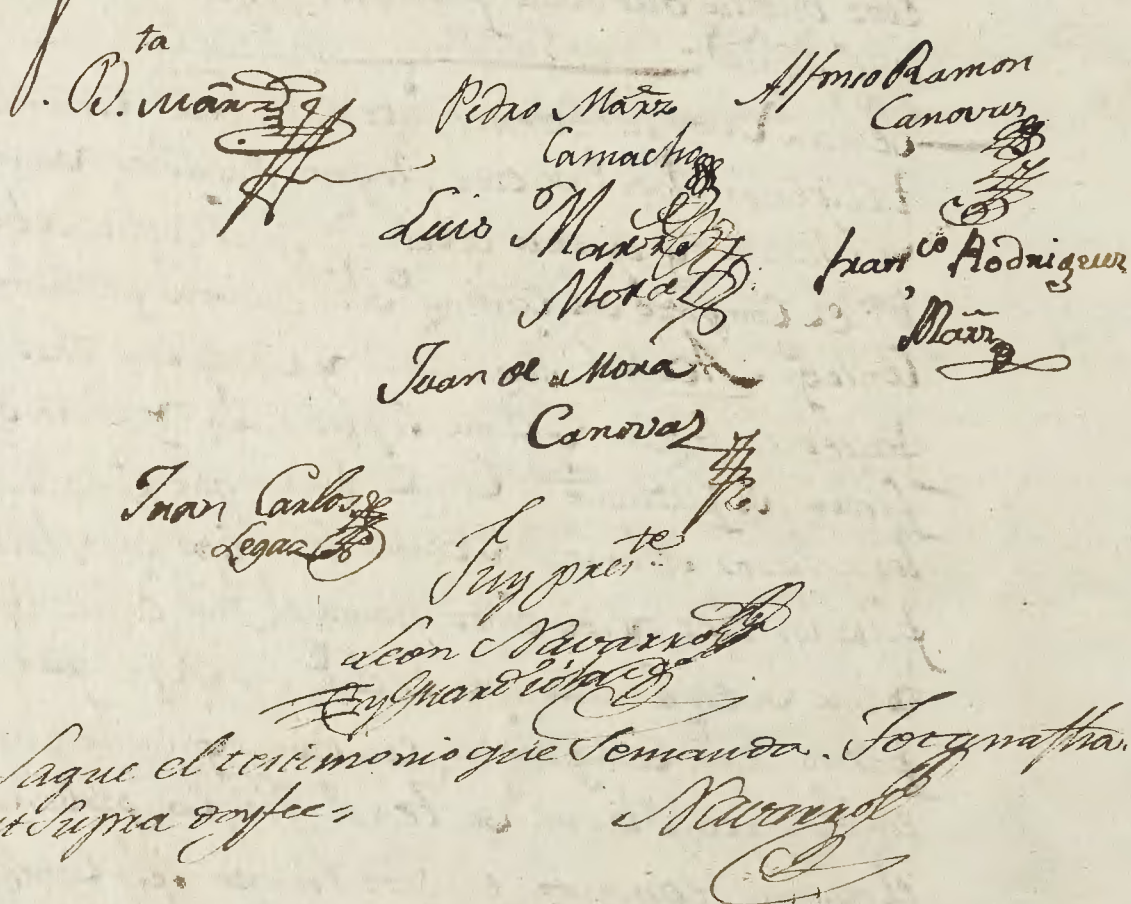 B.ta Mãrz
Pedro Mãrz
Camacho
Alfonso Ramon
Canovas
Luis Marrz
Mora
Fran.co Rodriguez
Mãrz
Juan de Mora
Canovas
Juan Carlos
Legaz
Fuy pres.te
Leon Navarro
y Guardiola
Saque el testimonio que se manda. Totana fha
ut Supra doy fee=
Navarro